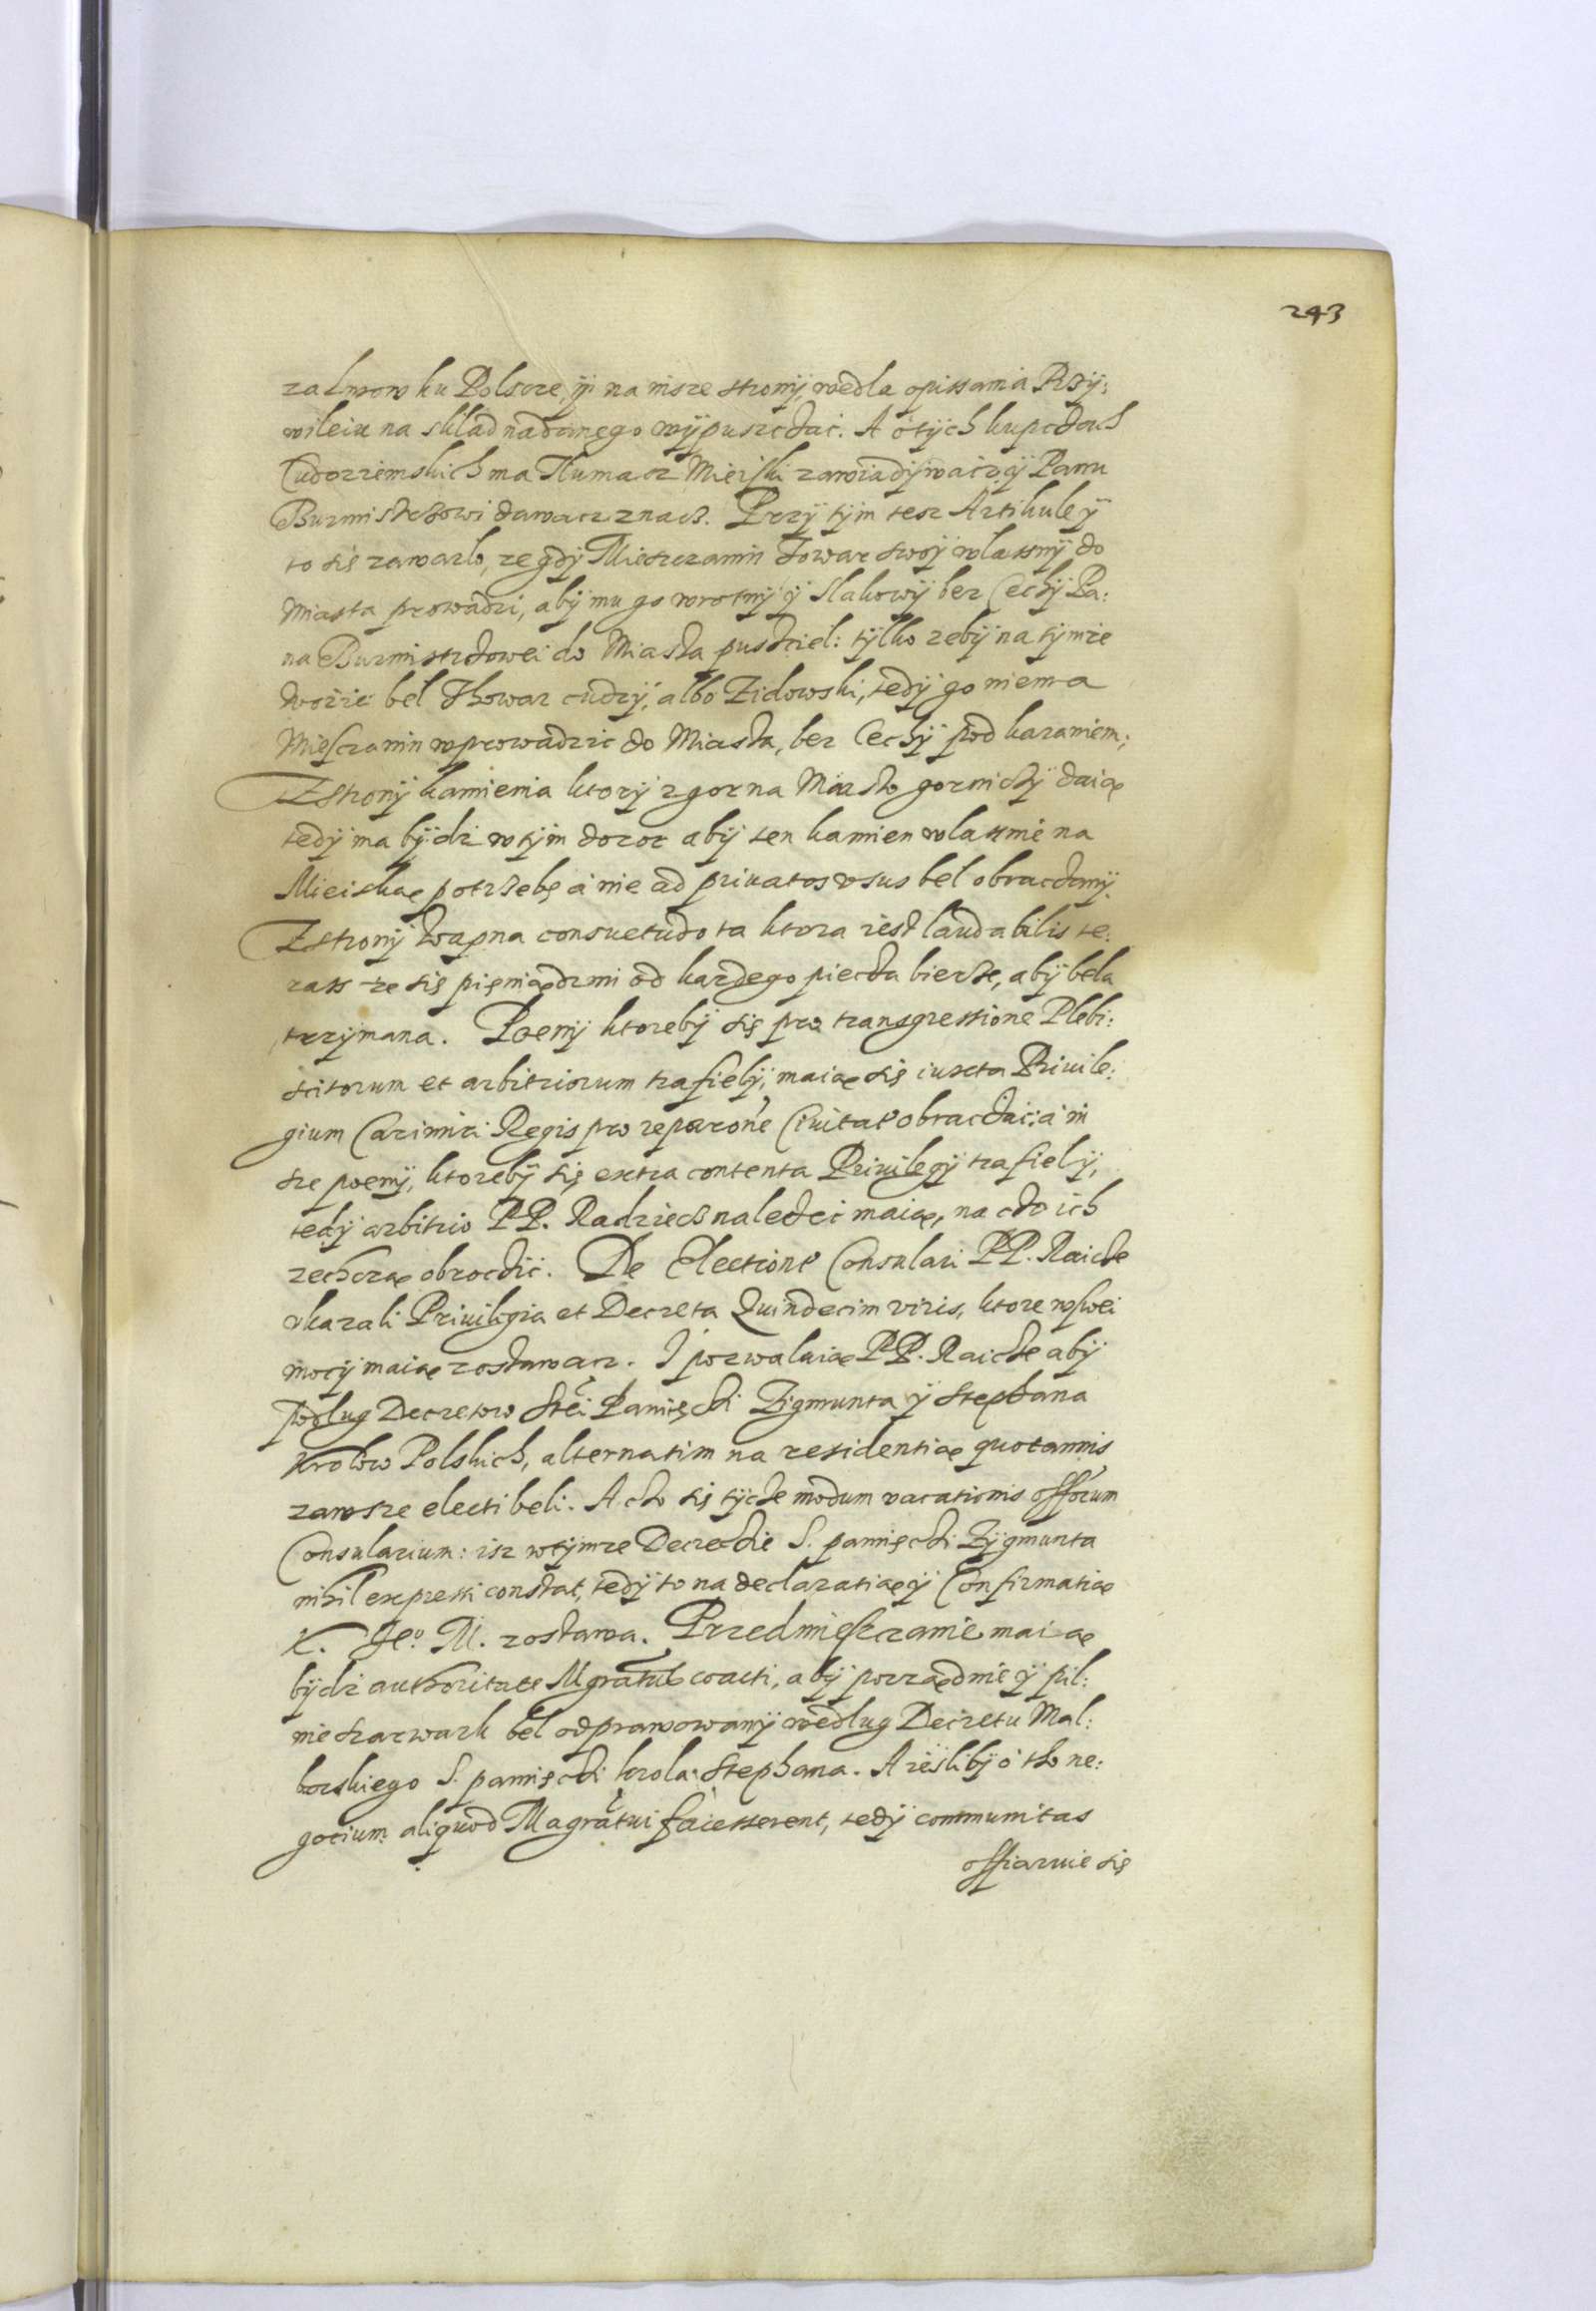 243
za Lwow ku Polscze, ÿ na insze stronÿ, wedla opissania Przÿ:
wileiu na sklad nadanego wÿpuszczać. A o tÿch kupczach
Cudzoziemskich ma Tlumacz Mieiski zawiadÿwać, ÿ Panu
Burmistrzowi dawacz znacz. Przÿ tÿm tesz Artikule ÿ
to się zawarlo, ze gdÿ Miesczanin Towar swóÿ wlassnÿ do
Miasta prowadzi, abÿ mu go wrotnÿ ÿ Slakowÿ bez Cechÿ Pa:
na Burmistrzowei do Miasta pusczięl: tÿlko zebÿ na tÿmze
wozie bel Thowar cudzÿ, albo Zidowski, tedÿ go niema
Miesczanin wprowadzic do Miasta, bez Cechÿ pod karaniem;
Z stronÿ kamienia ktorÿ z gor na Miasto gorniczÿ daią
tedÿ ma bÿdz w tÿm dozor abÿ ten kamien wlassnie na
Mieiską potrzebę á nie ad priuatos vsus bel obraczanÿ.
Z stronÿ wapna consuetudo ta ktora iest laudabilis te:
rass ze się pieniądzmi od kazdego pieca bierze, abÿ bela
trzÿmana. Poenÿ ktorebÿ się pro transgressione Plebi:
scitorum et arbitriorum trafielÿ, maią się iuxta Priuile:
gium Casimiri Regis pro reparone Ciuitat obracać: á in
sze poenÿ, ktorebÿ się extra contenta Priuilegÿ trafielÿ,
tedÿ arbitrio PP. Radziecz nalezec maią, na czo ich
zechczą obroczić. De Electione Consulari PP. Raicze
vkazali Priuilegia et Decreta Quindecim viris, ktore w swei
mocÿ maią zostawacz. I pozwalaią PP. Raicze abÿ
podlug Decretow Stei Pamięczi Zigmunta ÿ Stephana
Krolow Polskich, alternatim na residentią quotannis
zawsze electi beli. A czo się tÿcze modum vacationis offorum
Consularium: isz w tÿmze Decreczie S. pamięczi Zÿgmunta
nihil expressi constat, tedÿ to na declaratią ÿ Confirmatią
K. Je°. M. zostawa. Przedmiesczanie maią
bÿdz authoritate Mgratus coacti, abÿ porządnie ÿ pil:
nie szarwark bel odprawowanÿ wedlug Decretu Mal:
borskiego S. pamięczi krola Stephana. A iesslibÿ o tho ne:
gotium aliquod Magratui facesserent, tedÿ communitas
offiaruie się